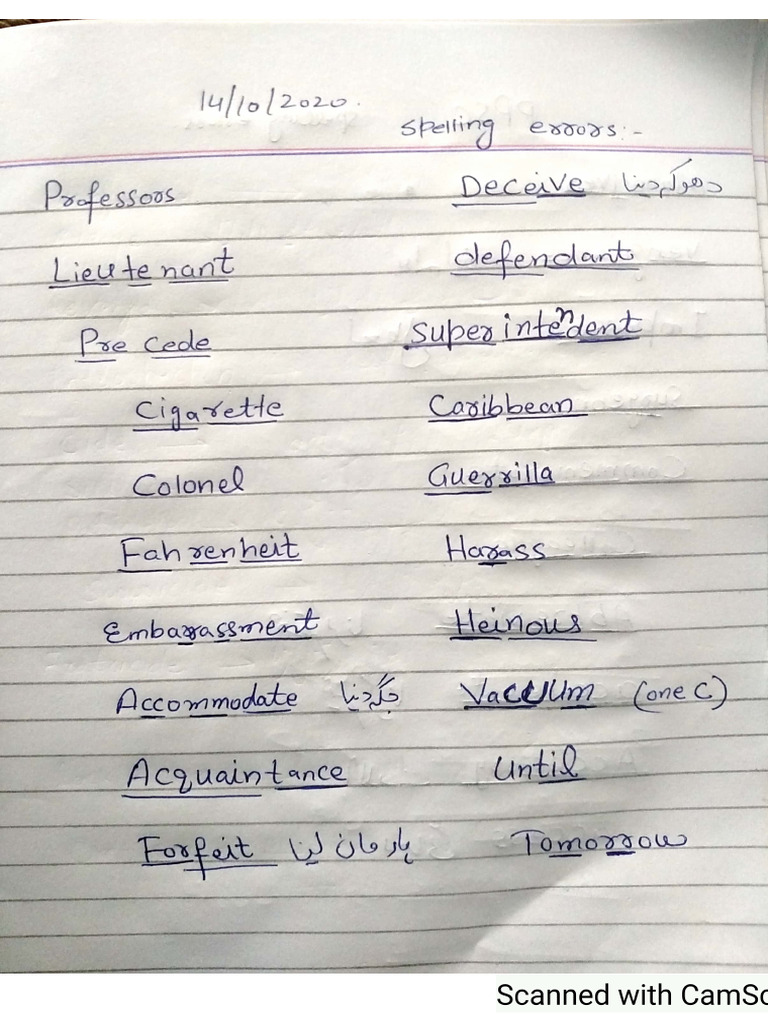 14/10/2020.
Spelling errors:-
Professors Deceive دھوکہ دینا
Lieutenant defendant
Precede Superintendent
Cigarette Caribbean
Colonel Guerrilla
Fahrenheit Harass
Embarassment Heinous
Accommodate جگہ دینا Vaccuum (one C)
Acquaintance Until
Forfeit ہار مان لینا Tomorrow
Scanned with CamSc